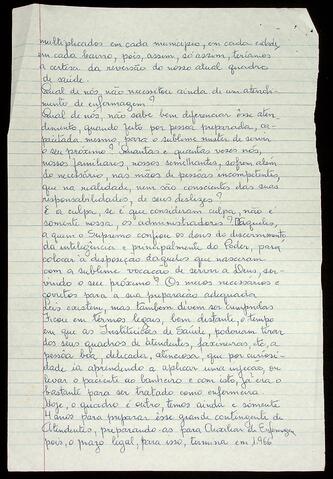 multiplicados em cada município, em cada cidade,
em cada bairro, pois, assim, só assim, teríamos
a certeza da reversão do nosso atual quadro
de saúde.
Qual de nós, não necessitou ainda de um atendi-
mento de enfermagem?
Qual de nós, não sabe bem diferenciar esse aten
dimento, quando feito por pessoa preparada, ca-
pacitada mesmo para o sublime mister de servir
o seu próximo? Quantas e quantas vezes nós,
nossos familiares, nossos semelhantes, sofrem além
do necessário, nas mãos de pessoas incompetentes
que na realidade, nem são conscientes das suas
responsabilidades, de seus deslizes?
E a culpa, se é que consideram culpa, não é
somente nossa, os administradores? Daqueles,
a quem o Supremo confiou os dons do discernimento
da inteligência e principalmente do Poder, para
colocar à disposição daqueles que nasceram
com a sublime vocação de servir a Deus, ser-
vindo o seu próximo? Os meios necessários e
corretos para a sua preparação adequada
Leis existem, mas também devem ser cumpridas
Ficou em termos legais, bem distante, o tempo
em que as Instituições de Saúde, poderiam tirar
dos seus quadros de atendentes, faxineiras, etc, a
pessoa boa, delicada, atenciosa, que por curiosi-
dade ia aprendendo a aplicar uma injeção, ou
levar o paciente ao banheiro e com isto, já era o
bastante para ser tratado como enfermeira
Hoje, o quadro é outro, temos ainda e somente
4 anos para preparar esse grande contingente de
Atendentes, preparando-as para Auxiliar de Enfermagem
pois, o prazo legal, para isso, termina em 1996